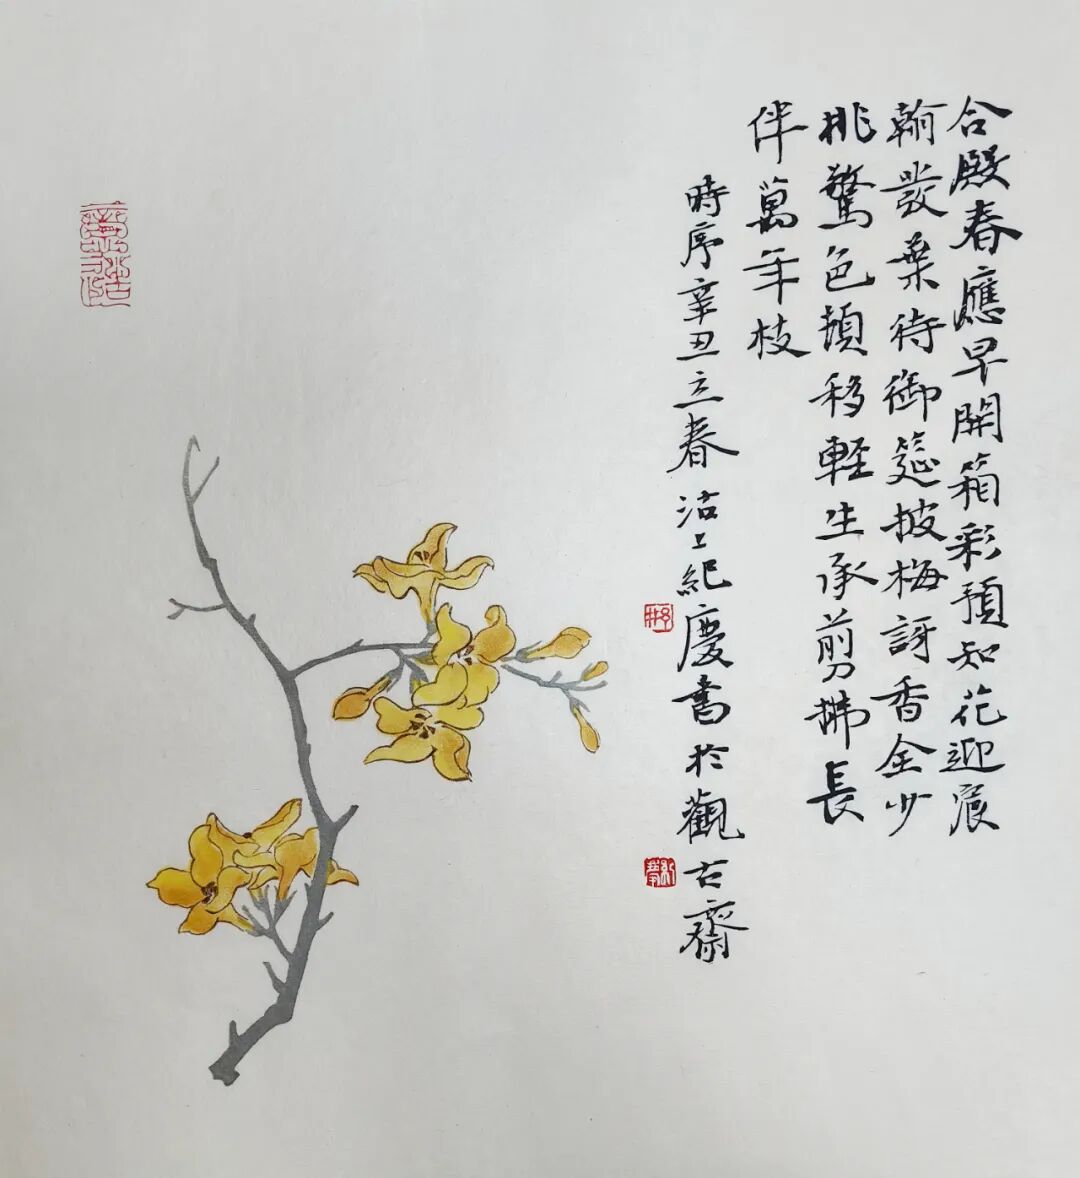 合殿春應早開箱彩預知花迎宸
翰發葉待御筵披梅訝香全少
桃驚色頓移輕生承剪拂長
伴萬年枝
時序辛丑立春沽上紀慶書於觀古齋